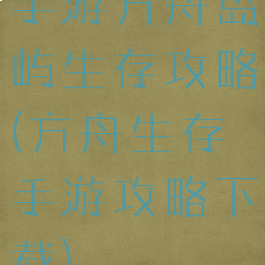 手游方舟岛
屿生存攻略
(方舟生存
手游攻略下
载)